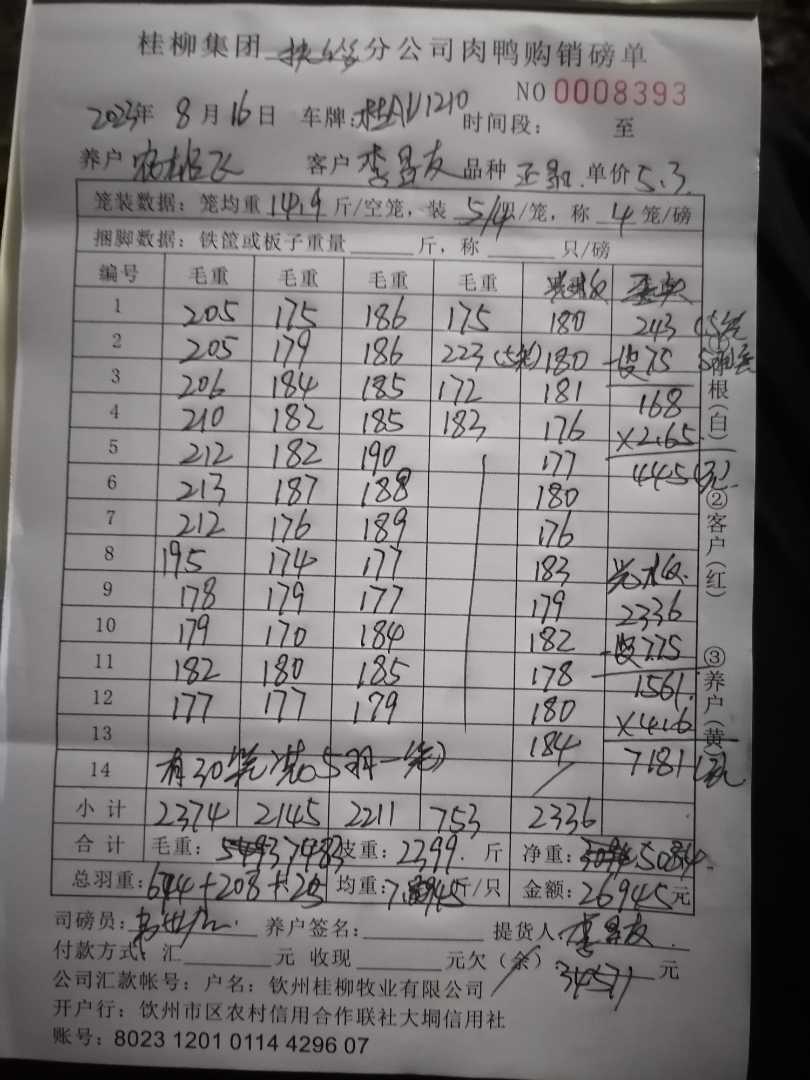 桂柳集团 扶绥分公司肉鸭购销磅单
NO 0008393
2023年 8月16日 车牌:桂AU1210 时间段: 至
养户 客户 李昌友 品种 单价 5.3
笼装数据:笼均重 14.9 斤/空笼,装 5/4只/笼,称 4 笼/磅
捆脚数据:铁筐或板子重量 斤,称 只/磅
编号 毛重 毛重 毛重 毛重
1 205 175 186 175 180 243 (5笼
2 205 179 186 223(5笼) 180 -皮75
3 206 184 185 172 181 168
4 210 182 185 183 176 ×2.65
5 212 182 190 177 445(元)
6 213 187 188 180
7 212 176 189 176
8 195 174 177 183
9 178 179 177 179 2336
10 179 170 184 182 -皮775
11 182 180 185 178 1561
12 177 177 179 180 ×4.6
13 184 7181(元
14 有30笼装5羽一笼)
小计 2374 2145 2211 753 2336
合计 毛重: 7483 皮重:2399 斤 净重: 5084
总羽重:644+208+25 均重: 斤/只 金额:26945元
司磅员: 养户签名: 提货人:李昌友
付款方式:汇 元 收现 元欠(余) 34571 元
公司汇款帐号:户名:钦州桂柳牧业有限公司
开户行:钦州市区农村信用合作联社大垌信用社
账号:8023 1201 0114 4296 07
①根(白) ②客户(红) ③养户(黄)